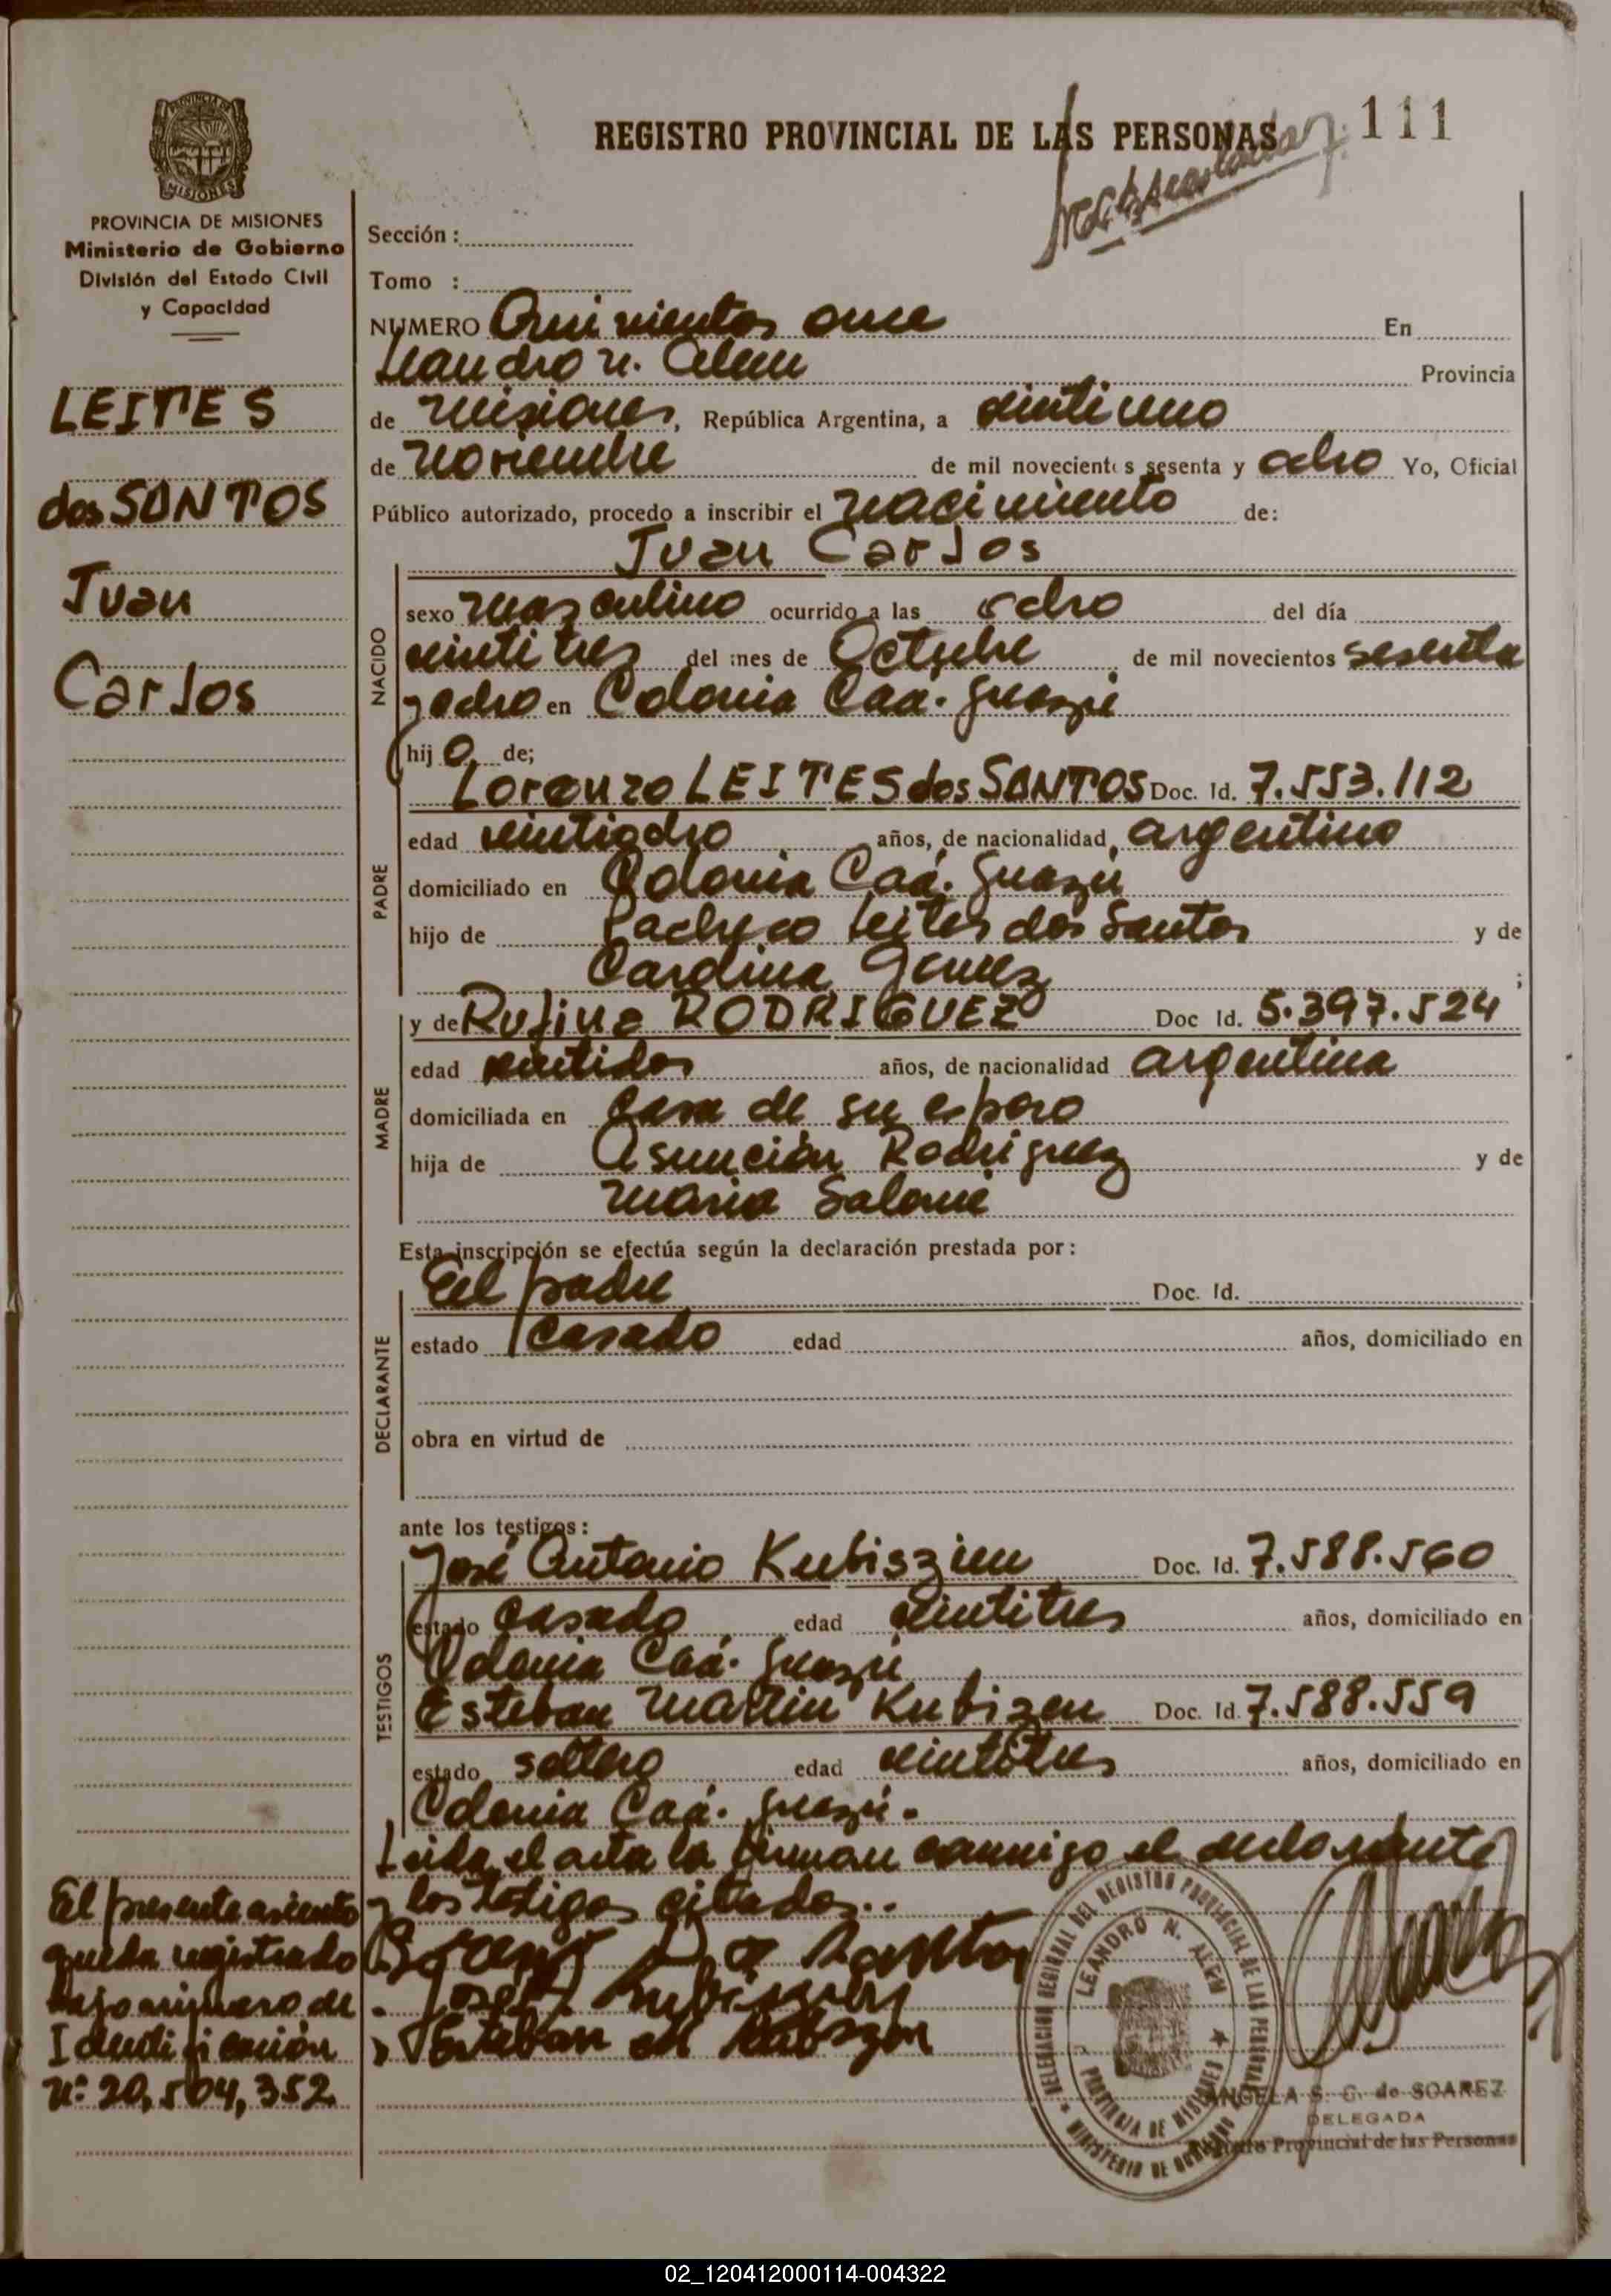 REGISTRO PROVINCIAL DE LAS PERSONAS
111
PROVINCIA DE MISIONES
Ministerio de Gobierno
División del Estado Civil
y Capacidad
LEITES
dos SANTOS
Juan
Carlos
Sección :
Tomo :
NUMERO Quinientos once En
Leandro N. Alem Provincia
de Misiones, República Argentina, a veintiuno
de Noviembre de mil novecientos sesenta y ocho Yo, Oficial
Público autorizado, procedo a inscribir el nacimiento de:
Juan Carlos
NACIDO
sexo masculino ocurrido a las ocho del día
veintitres del mes de Octubre de mil novecientos sesenta
y ocho en Colonia Caá. Guazú
hij o de;
Lorenzo LEITES dos SANTOS Doc. Id. 7.553.112
PADRE
edad veintiocho años, de nacionalidad argentino
domiciliado en Colonia Caá. Guazú
hijo de Pacheco Leites dos Santos y de
Cardina Gomez ;
y de Rufina RODRIGUEZ Doc Id. 5.397.524
MADRE
edad veintidos años, de nacionalidad argentina
domiciliada en casa de su esposo
hija de Asunción Rodriguez y de
Maria Salomé
Esta inscripción se efectúa según la declaración prestada por:
DECLARANTE
El padre Doc. Id.
estado casado edad años, domiciliado en
obra en virtud de
ante los testigos:
TESTIGOS
José Antonio Kubiszen Doc. Id. 7.588.560
estado casado edad veintitres años, domiciliado en
Colonia Caá. Guazú
Esteban Martin Kubizen Doc. Id. 7.588.559
estado soltero edad veintitres años, domiciliado en
Colonia Caá. Guazú.
Leida el acta la firman conmigo el declarante
y los testigos citados..
El presente asiento
queda registrado
bajo número de
Identificación
N: 20,504,352
DELEGACION REGIONAL DEL REGISTRO PROVINCIAL DE LAS PERSONAS
LEANDRO N. ALEM
PROVINCIA DE MISIONES
MINISTERIO DE GOBIERNO
ANGELA S. C. de SOAREZ
DELEGADA
Provincial de las Personas
02_120412000114-004322